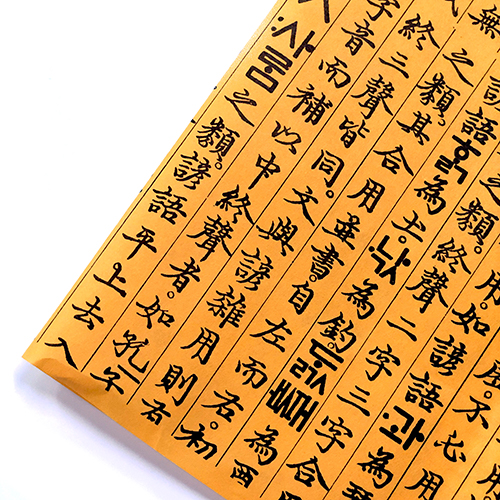 不必用
用。如諺語과為
之類。終聲二字三字合用
諺語。ᄒᆞᆰ為土。낛為釣。ᄃᆞᇌᄣᅢ為酉
之類。其合用並書。自左而右。初
終三聲皆同。文與諺雜用則有
字音而補以中終聲者。如孔子ㅣ
사ᄅᆞᆷ之類。諺語平上去入